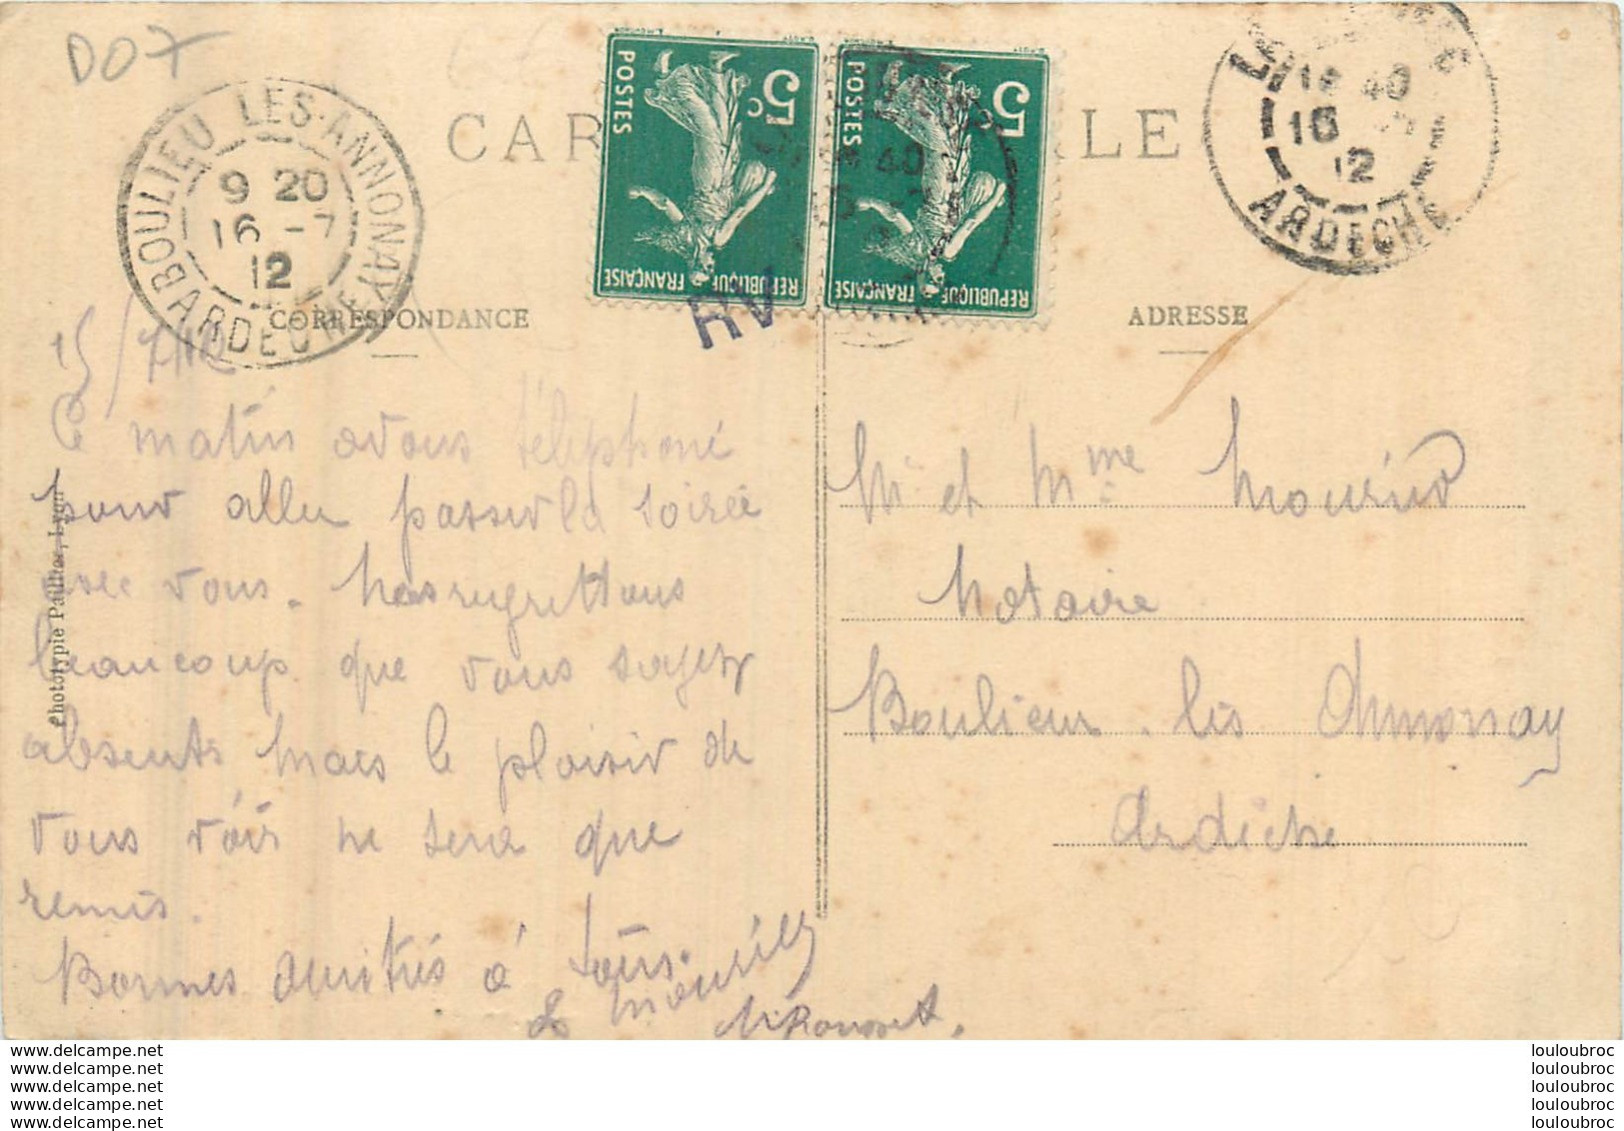 D07
CARTE POSTALE
BOULIEU LES-ANNONAY
9 20
16 -7
12
ARDECHE
POSTES
5c
REPUBLIQUE FRANÇAISE
POSTES
5
REPUBLIQUE FRANÇAISE
40
16
12
ARDECHE
RV
CORRESPONDANCE
ADRESSE
15/7/12
Ce matin avons téléphoné
pour aller passer la soirée
avec vous. Nous regrettons
beaucoup que vous soyez
absents mais le plaisir de
vous voir ne sera que
remis.
Bonnes amitiés à tous.
Mr et Mme
Notaire
Boulieu. lès Annonay
Ardèche
Phototypie Paillier, Lyon
www.delcampe.net
www.delcampe.net
www.delcampe.net
www.delcampe.net
www.delcampe.net
louloubroc
louloubroc
louloubroc
louloubroc
louloubroc